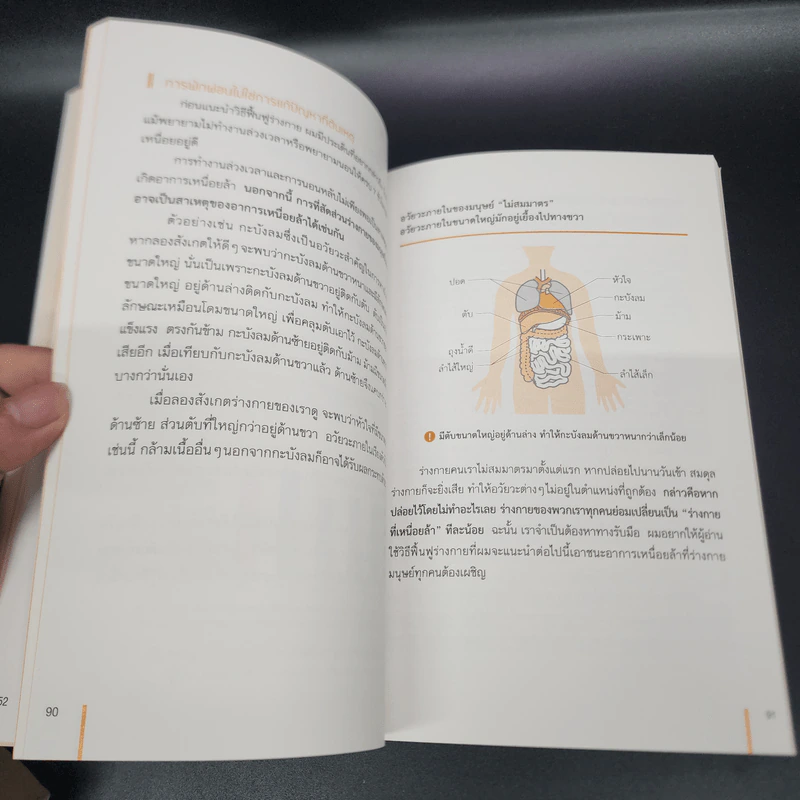 การพักผ่อนไม่ใช่การแก้ปัญหาที่ต้นเหตุ
ก่อนแนะนำวิธีฟื้นฟูร่างกาย ผมมีประเด็นที่อยาก
แม้พยายามไม่ทำงานล่วงเวลาหรือพยายามนอนให้
เหนื่อยอยู่ดี
การทำงานล่วงเวลาและการนอนหลับไม่เพียงพอ
เกิดอาการเหนื่อยล้า นอกจากนี้ การที่สัดส่วนร่างกาย
อาจเป็นสาเหตุของอาการเหนื่อยล้าได้เช่นกัน
ตัวอย่างเช่น กะบังลมซึ่งเป็นอวัยวะสำคัญในการ
หากลองสังเกตให้ดีๆ จะพบว่ากะบังลมด้านขวาหนาและ
ขนาดใหญ่ นั่นเป็นเพราะกะบังลมด้านขวาอยู่ติดกับตับ
ขนาดใหญ่ อยู่ด้านล่างติดกับกะบังลม ทำให้กะบังลมด้านขวา
ลักษณะเหมือนโดมขนาดใหญ่ เพื่อคลุมตับเอาไว้ กะบังลม
แข็งแรง ตรงกันข้าม กะบังลมด้านซ้ายอยู่ติดกับม้าม
เสียอีก เมื่อเทียบกับกะบังลมด้านขวาแล้ว ด้านซ้ายจึง
บางกว่านั่นเอง
เมื่อลองสังเกตร่างกายของเราดู จะพบว่าหัวใจ
ด้านซ้าย ส่วนตับที่ใหญ่กว่าอยู่ด้านขวา อวัยวะภายใน
เช่นนี้ กล้ามเนื้ออื่นๆ นอกจากกะบังลมก็อาจได้รับผลกระทบ
52
90
อวัยวะภายในของมนุษย์ "ไม่สมมาตร"
อวัยวะภายในขนาดใหญ่มักอยู่เยื้องไปทางขวา
ปอด
หัวใจ
กะบังลม
ตับ
ม้าม
กระเพาะ
ถุงน้ำดี
ลำไส้ใหญ่
ลำไส้เล็ก
! มีตับขนาดใหญ่อยู่ด้านล่าง ทำให้กะบังลมด้านขวาหนากว่าเล็กน้อย
ร่างกายคนเราไม่สมมาตรมาตั้งแต่แรก หากปล่อยไปนานวันเข้า สมดุล
ร่างกายก็จะยิ่งเสีย ทำให้อวัยวะต่างๆ ไม่อยู่ในตำแหน่งที่ถูกต้อง กล่าวคือหาก
ปล่อยไว้โดยไม่ทำอะไรเลย ร่างกายของพวกเราทุกคนย่อมเปลี่ยนเป็น "ร่างกาย
ที่เหนื่อยล้า" ทีละน้อย ฉะนั้น เราจำเป็นต้องหาทางรับมือ ผมอยากให้ผู้อ่าน
ใช้วิธีฟื้นฟูร่างกายที่ผมจะแนะนำต่อไปนี้เอาชนะอาการเหนื่อยล้าที่ร่างกาย
มนุษย์ทุกคนต้องเผชิญ
91